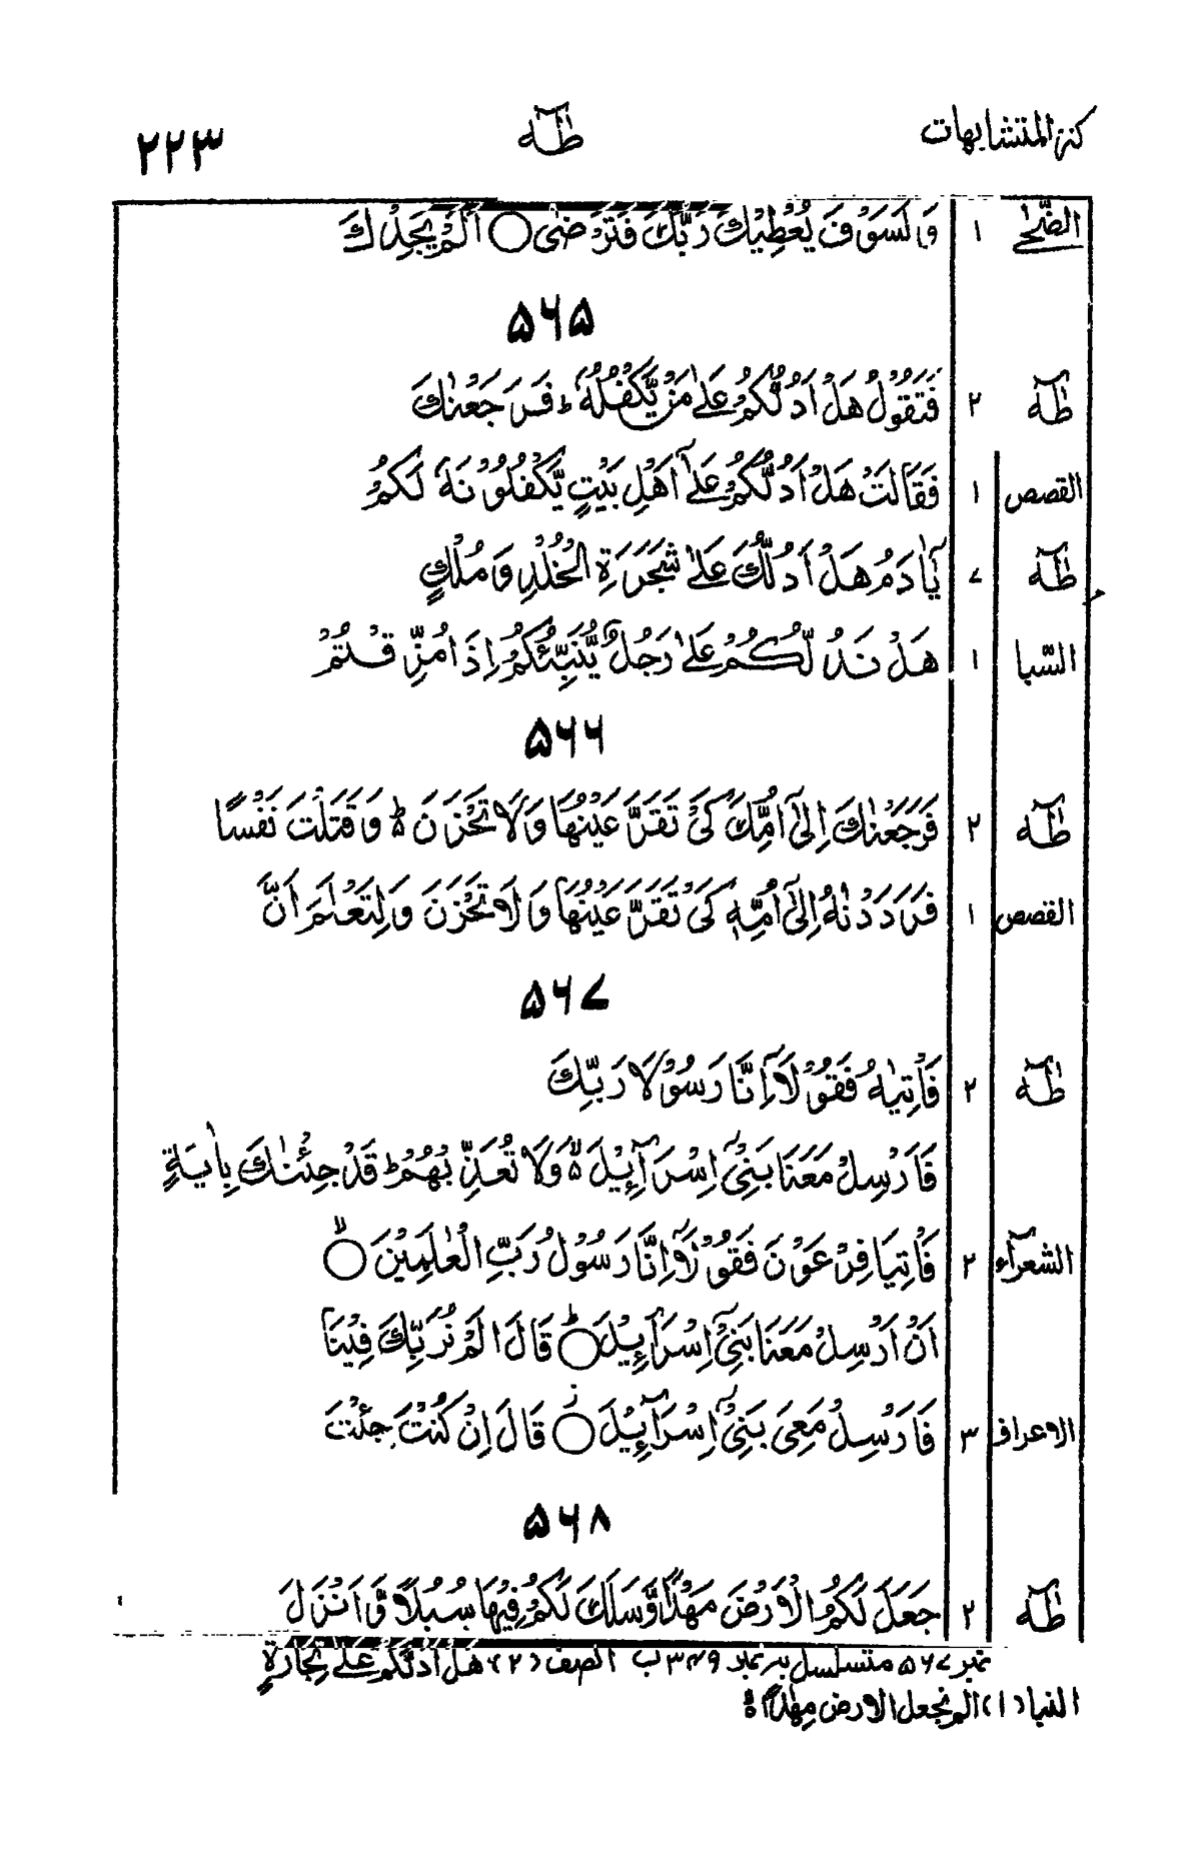 كنز المتشابهات طٰهٰ ۲۲۳
الضحٰی ۱ وَلَسَوْفَ يُعْطِيْكَ رَبُّكَ فَتَرْضٰى ○ اَلَمْ يَجِدْكَ
۵۶۵
طٰهٰ ۲ فَتَقُوْلُ هَلْ اَدُلُّكُمْ عَلٰى مَنْ يَّكْفُلُهٗ ط فَرَجَعْنٰكَ
القصص ۱ فَقَالَتْ هَلْ اَدُلُّكُمْ عَلٰٓى اَهْلِ بَيْتٍ يَّكْفُلُوْنَهٗ لَكُمْ
طٰهٰ ۷ يٰٓاٰدَمُ هَلْ اَدُلُّكَ عَلٰى شَجَرَةِ الْخُلْدِ وَمُلْكٍ
السّبا ۱ هَلْ نَدُلُّكُمْ عَلٰى رَجُلٍ يُّنَبِّئُكُمْ اِذَا مُزِّقْتُمْ
۵۶۶
طٰهٰ ۲ فَرَجَعْنٰكَ اِلٰٓى اُمِّكَ كَىْ تَقَرَّ عَيْنُهَا وَلَا تَحْزَنَ ە ط وَقَتَلْتَ نَفْسًا
القصص ۱ فَرَدَدْنٰهُ اِلٰٓى اُمِّهٖ كَىْ تَقَرَّ عَيْنُهَا وَلَا تَحْزَنَ وَلِتَعْلَمَ اَنَّ
۵۶۷
طٰهٰ ۲ فَاْتِيٰهُ فَقُوْلَآ اِنَّا رَسُوْلَا رَبِّكَ
فَاَرْسِلْ مَعَنَا بَنِىْٓ اِسْرَآءِيْلَ ە وَلَا تُعَذِّبْهُمْ ط قَدْ جِئْنٰكَ بِاٰيَةٍ
الشعرآء ۲ فَاْتِيَا فِرْعَوْنَ فَقُوْلَآ اِنَّا رَسُوْلُ رَبِّ الْعٰلَمِيْنَ ○ لا
اَنْ اَرْسِلْ مَعَنَا بَنِىْٓ اِسْرَآءِيْلَ ○ ط قَالَ اَلَمْ نُرَبِّكَ فِيْنَا
الاعراف ۳ فَاَرْسِلْ مَعِىَ بَنِىْٓ اِسْرَآءِيْلَ ○ ز قَالَ اِنْ كُنْتَ جِئْتَ
۵۶۸
طٰهٰ ۲ جَعَلَ لَكُمُ الْاَرْضَ مَهْدًا وَّسَلَكَ لَكُمْ فِيْهَا سُبُلًا وَّاَنْزَلَ
نمبر ۵۶۷ متسلسل بر نمبر ۳۴۹ ب الصف (۲) هَلْ اَدُلُّكُمْ عَلٰى تِجَارَةٍ
النبا (۱) الم نجعل الارض مِهٰدًا ە